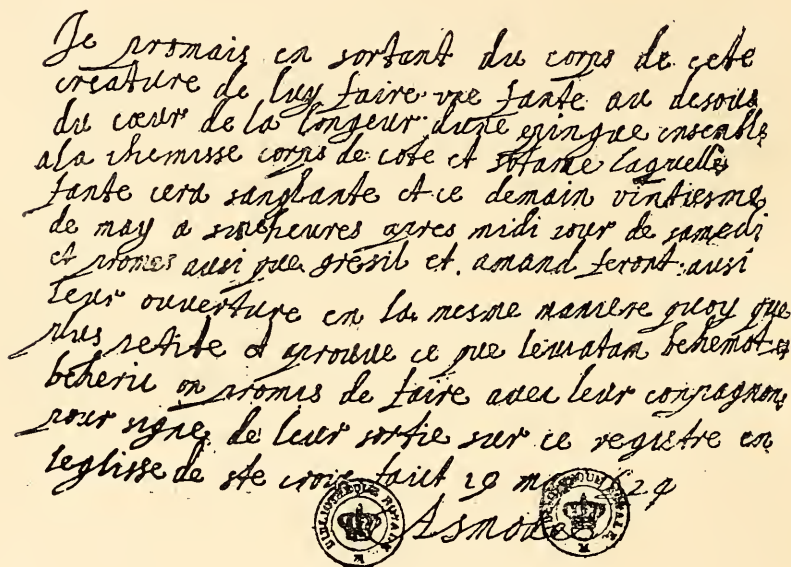 Je promais en sortant du corps de cete
creature de luy faire vne fante au desous
du cœur de la longeur dune epingue ensenble
a la chemisse corps de cote et sotane laquelle
fante cera sanglante et ce demain vintiesme
de may a sinc heures apres midi jour de samedi
et promes ausi que gresil et amand feront ausi
leur ouverture en la mesme maniere quoy que
plus petite et aprouue ce que leuiatam behemot
beherie on promis de faire auec leur conpagnon
pour signe de leur sortie sur ce registre en
leglisse de ste croix faict 19 may 629
Asmodee
BIBLIOTHEQUE ROYALE
BIBLIOTHEQUE ROYALE